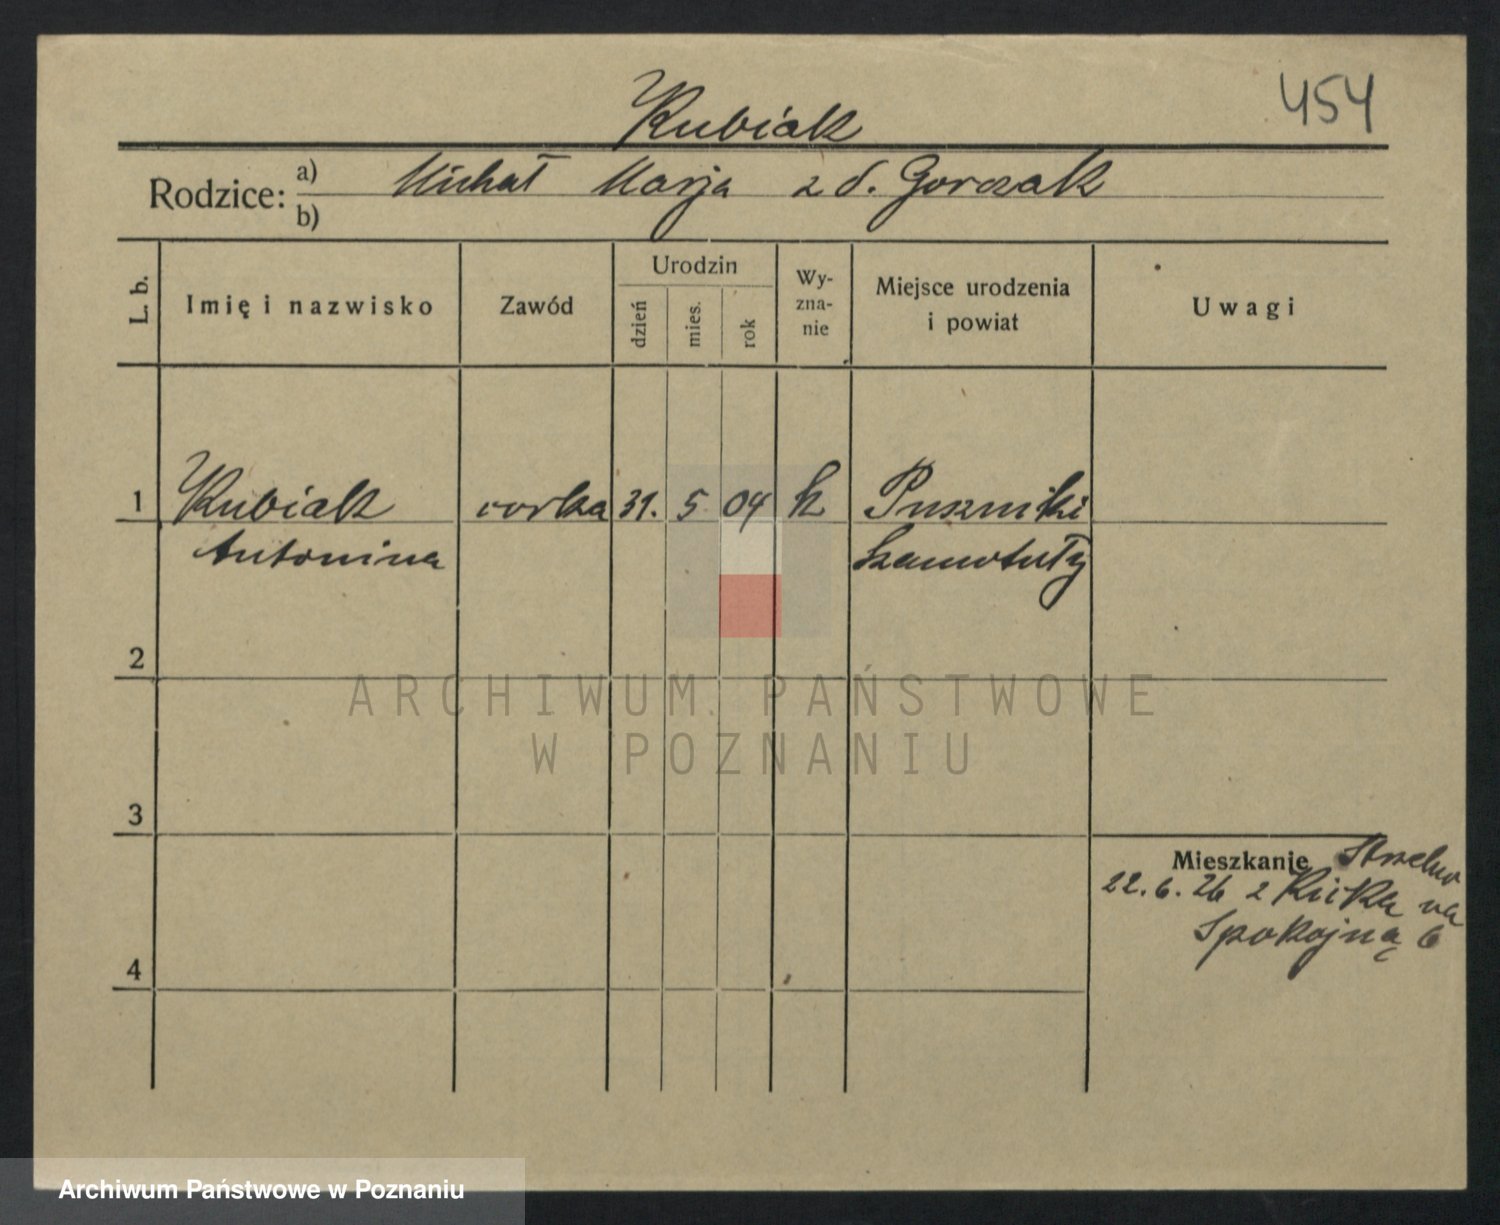 454
Kubiak
Rodzice: a) Michał Marja z d. Gorczak
b)
L. b.
Imię i nazwisko
Zawód
Urodzin
dzień
mies.
rok
Wy-
zna-
nie
Miejsce urodzenia
i powiat
Uwagi
1 Kubiak corka 31. 5 04 k
Antonina Szamotuły
2
ARCHIWUM PAŃSTWOWE
W POZNANIU
3
Mieszkanie
22.6.26 z Kicka na
Spokojną 6
4
Archiwum Państwowe w Poznaniu